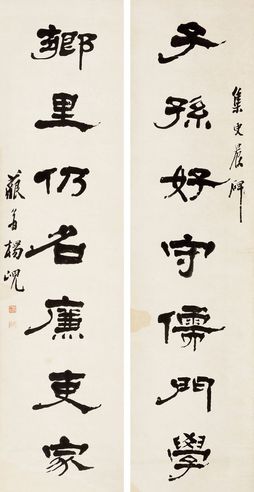 集史晨碑
子孫好守儒門學
鄉里仍名廉吏家
藐翁楊峴